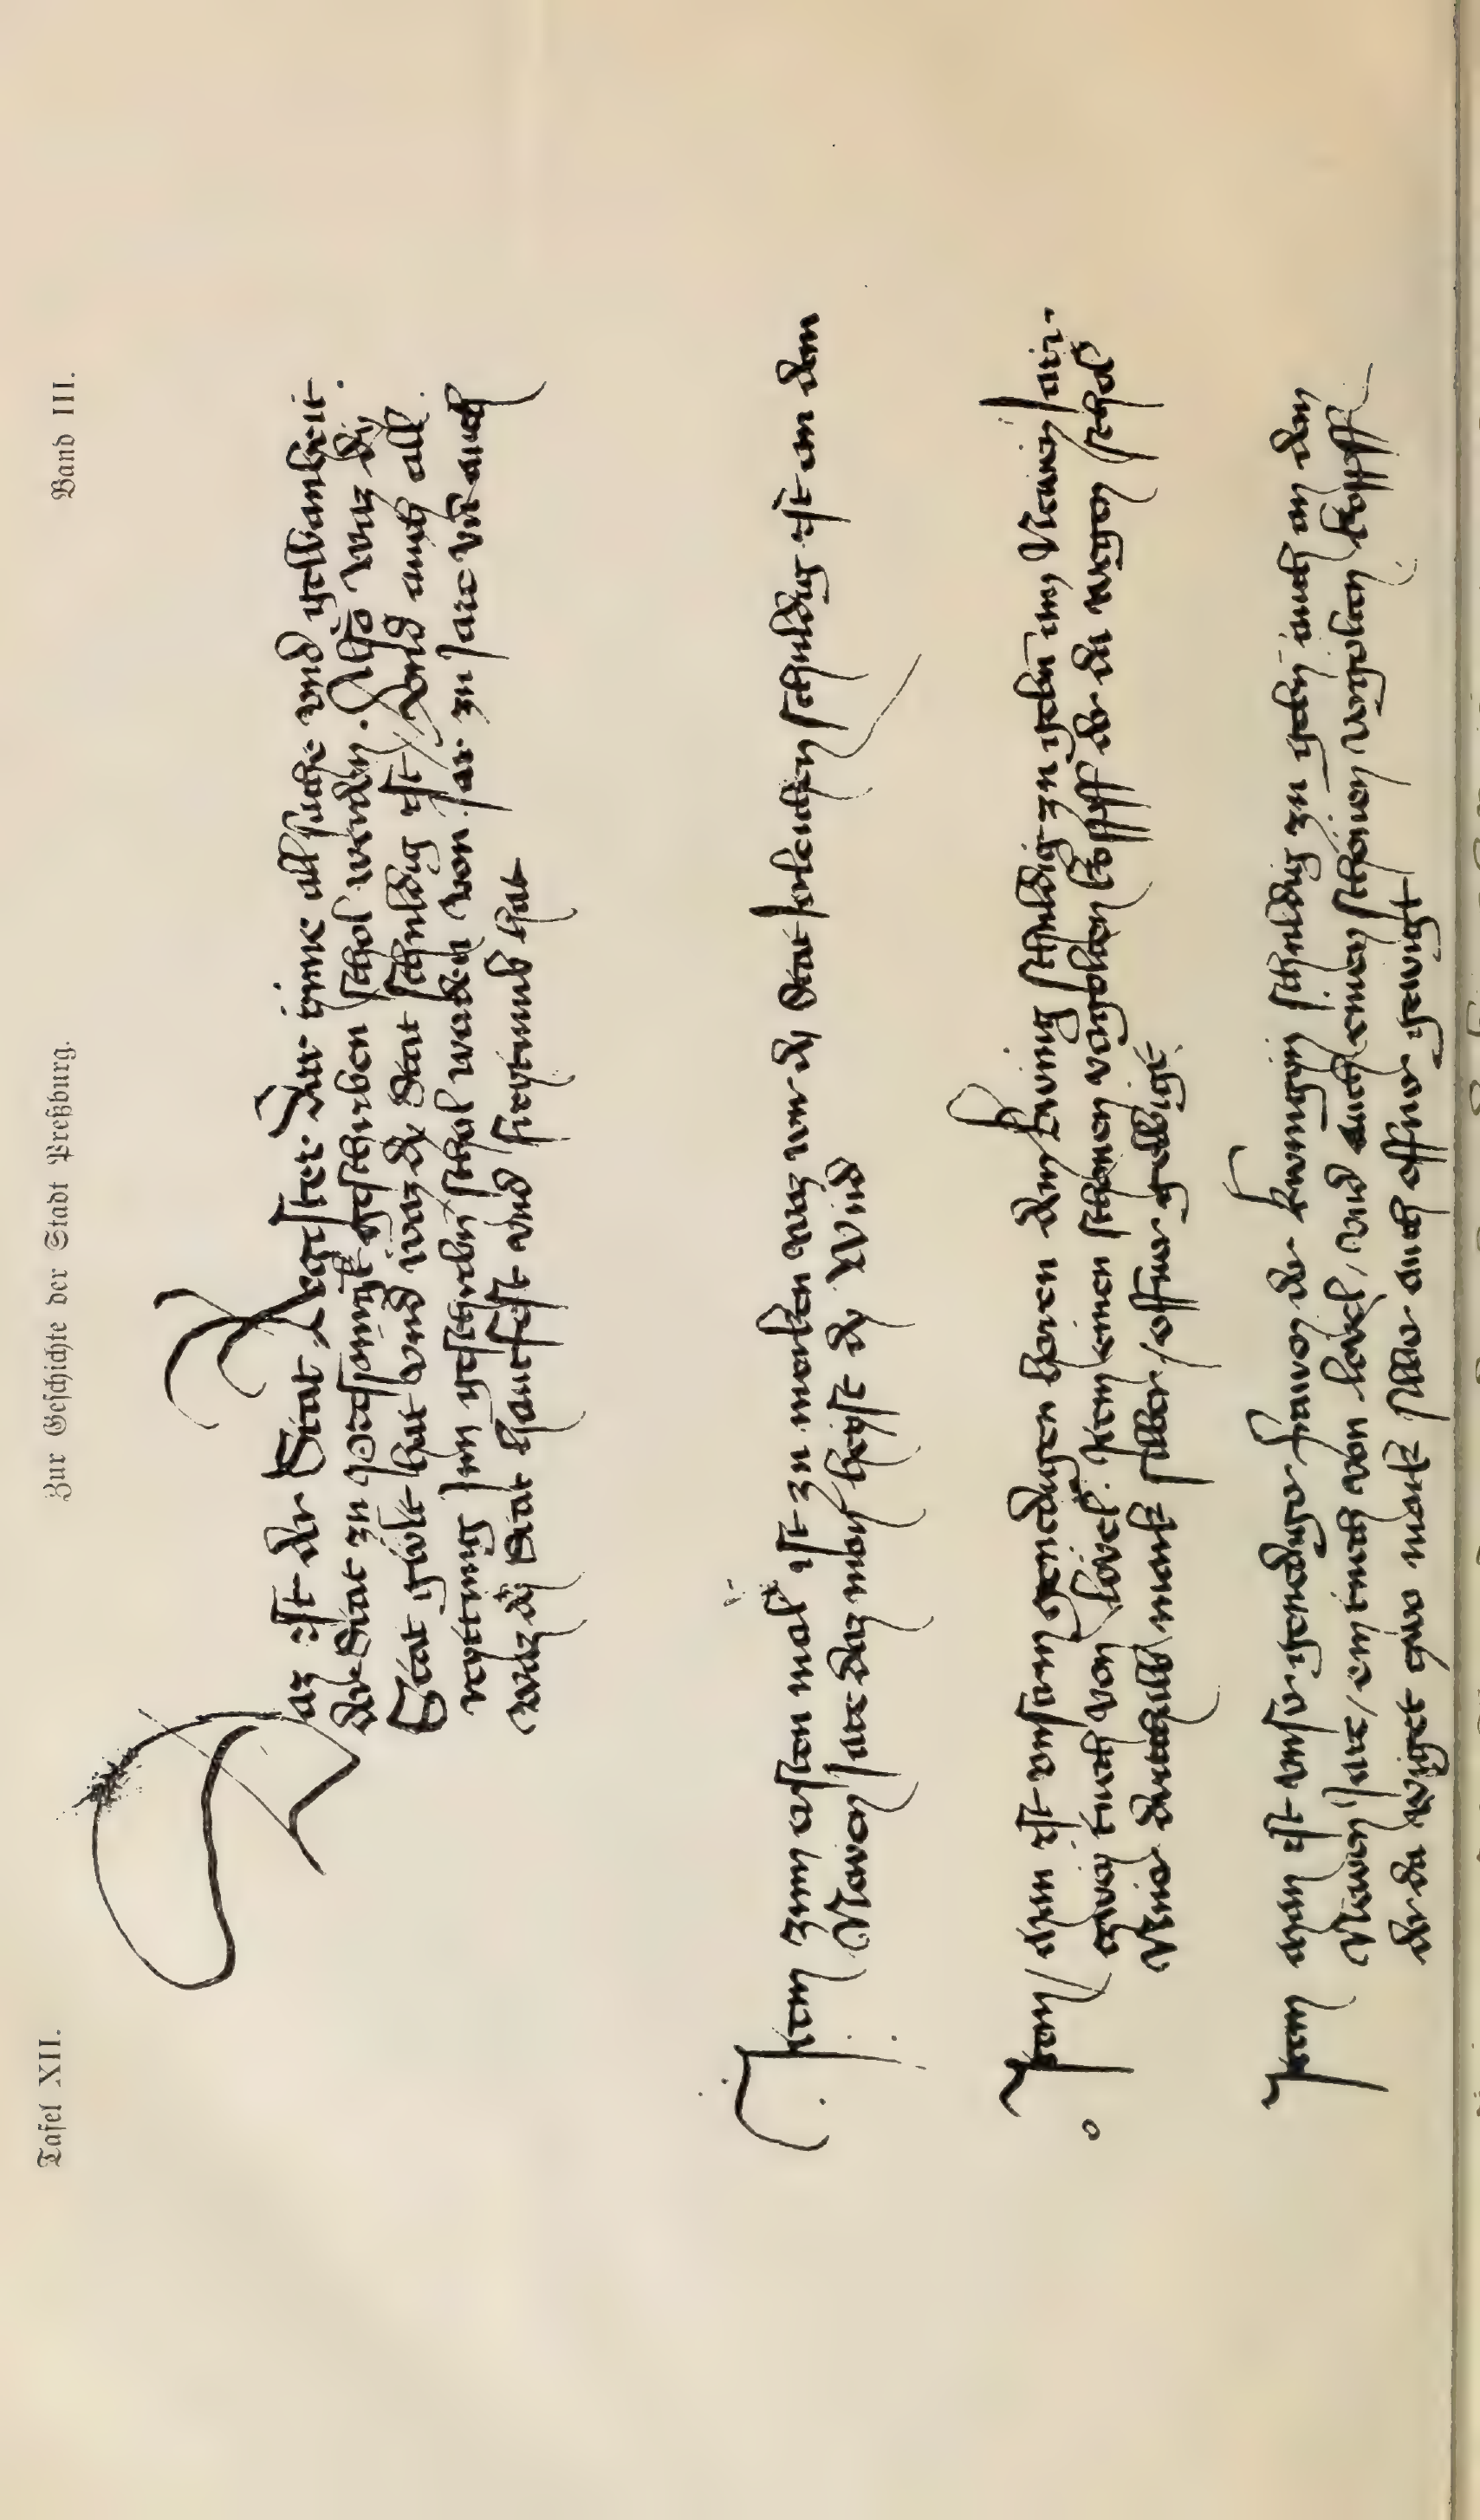 Tafel XII. Zur Geschichte der Stadt Preßburg. Band III.
Daz ist der Stat Register Dar ynne all sache vnd gelbanheit
der Stat zu geschriben schol werden. Also waz dy
Stat gulte hat vnd waz dy Stat schuldig ist / vnd auch all
reyttung Inn geschriben schol werden von jar zu jare vnd auch
waz dy Stat hantfest vnd freytumb hat
Item zum ersten mal ist zu merken waz vns dy Stat schuldig ist an dem
Newen jare daz man heyst dy
Item / aynn ist vnserm genedigen heren dem kuning schuldig zu geben inn Newen jar-
zwai tuch von lövel. Item einen schönen vergolten kopff der da wegen schol
Vier mark silber / offner
Item aynn ist vnser genediger frawen der kunigin schuldig zu geben auch an dem
Newen jare / ein tuch von lövel / vnd auch einen schönen vergolten kopff
der da wiget zwo mark silber auch offner gewigt